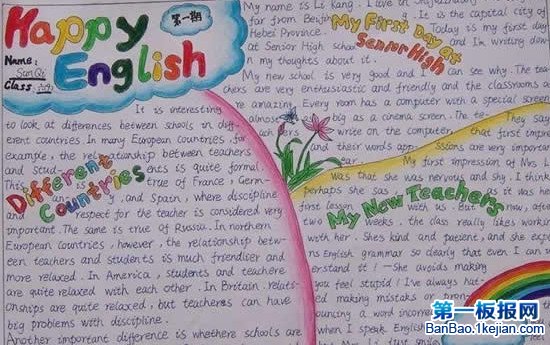 Happy
English
第一期
Name:
Sun Qi
Class:
It is interesting
to look at differences between schools in diff-
erent countries In many European countries, for
example, the relationship between teachers
and stud ents is quite formal
This true of France, Gern-
any, and Spain, where discipline
and respect for the teacher is considered very
important. The same is true of Russia. In northern
European countries, however, the relationship betw-
een teachers and students is much friendlier and
more relaxed. In America, students and teachere
are quite relaxed with each other. In Britain. relati-
onships are quite relaxed, but teachers can have
big problems with discipline.
Another important difference is whethere schools are
Different
Countries
My name is Li Kang. I love in
far from Beijin It is the capital city of
Hebei Province. Today is my first day
at Senior High school and I'm writing down
my thoughts about it.
My First Day At
Senior High
My new school is very good and I can see why. The teac
hers are very enthusiastic and friendly and the classrooms a
re amazing. Every room has a computer with a special screen
almost as big as a cinema screen. The te They say
write on the computer that first impre
and their words app ssions are very importan
My first impression of Mrs L
was that she was nervous and shy. I think
perhaps she was, as it was her
first lesson with us. But now, after
two weeks, the class really likes workin
with her. She's kind and patient, and she exp
ns English grammar so clearly that even I can u
erstand it! —She avoids making
you feel stupid! I've always hat-
ed making mistakes or pron
ouncing a word incorrec
when I speak English
My New Teachers
第一板报网
BanBao.1kejian.com